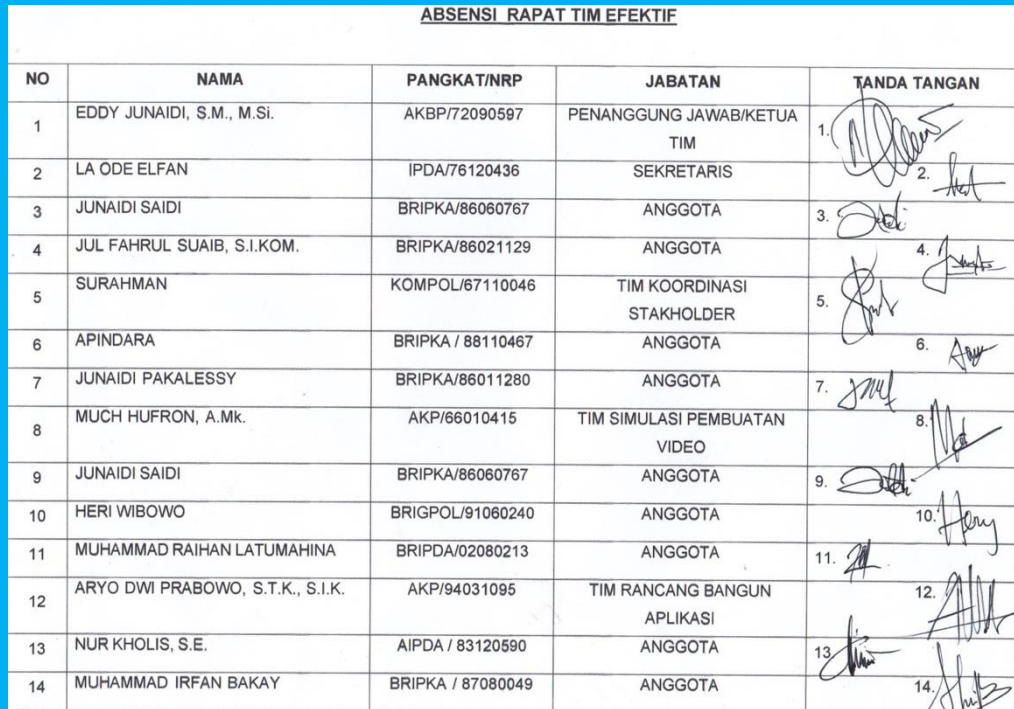 ABSENSI RAPAT TIM EFEKTIF
NO NAMA PANGKAT/NRP JABATAN TANDA TANGAN
1 EDDY JUNAIDI, S.M., M.Si. AKBP/72090597 PENANGGUNG JAWAB/KETUA TIM 1.
2 LA ODE ELFAN IPDA/76120436 SEKRETARIS 2.
3 JUNAIDI SAIDI BRIPKA/86060767 ANGGOTA 3.
4 JUL FAHRUL SUAIB, S.I.KOM. BRIPKA/86021129 ANGGOTA 4.
5 SURAHMAN KOMPOL/67110046 TIM KOORDINASI STAKHOLDER 5.
6 APINDARA BRIPKA / 88110467 ANGGOTA 6.
7 JUNAIDI PAKALESSY BRIPKA/86011280 ANGGOTA 7.
8 MUCH HUFRON, A.Mk. AKP/66010415 TIM SIMULASI PEMBUATAN VIDEO 8.
9 JUNAIDI SAIDI BRIPKA/86060767 ANGGOTA 9.
10 HERI WIBOWO BRIGPOL/91060240 ANGGOTA 10. Hery
11 MUHAMMAD RAIHAN LATUMAHINA BRIPDA/02080213 ANGGOTA 11.
12 ARYO DWI PRABOWO, S.T.K., S.I.K. AKP/94031095 TIM RANCANG BANGUN APLIKASI 12.
13 NUR KHOLIS, S.E. AIPDA / 83120590 ANGGOTA 13
14 MUHAMMAD IRFAN BAKAY BRIPKA / 87080049 ANGGOTA 14.